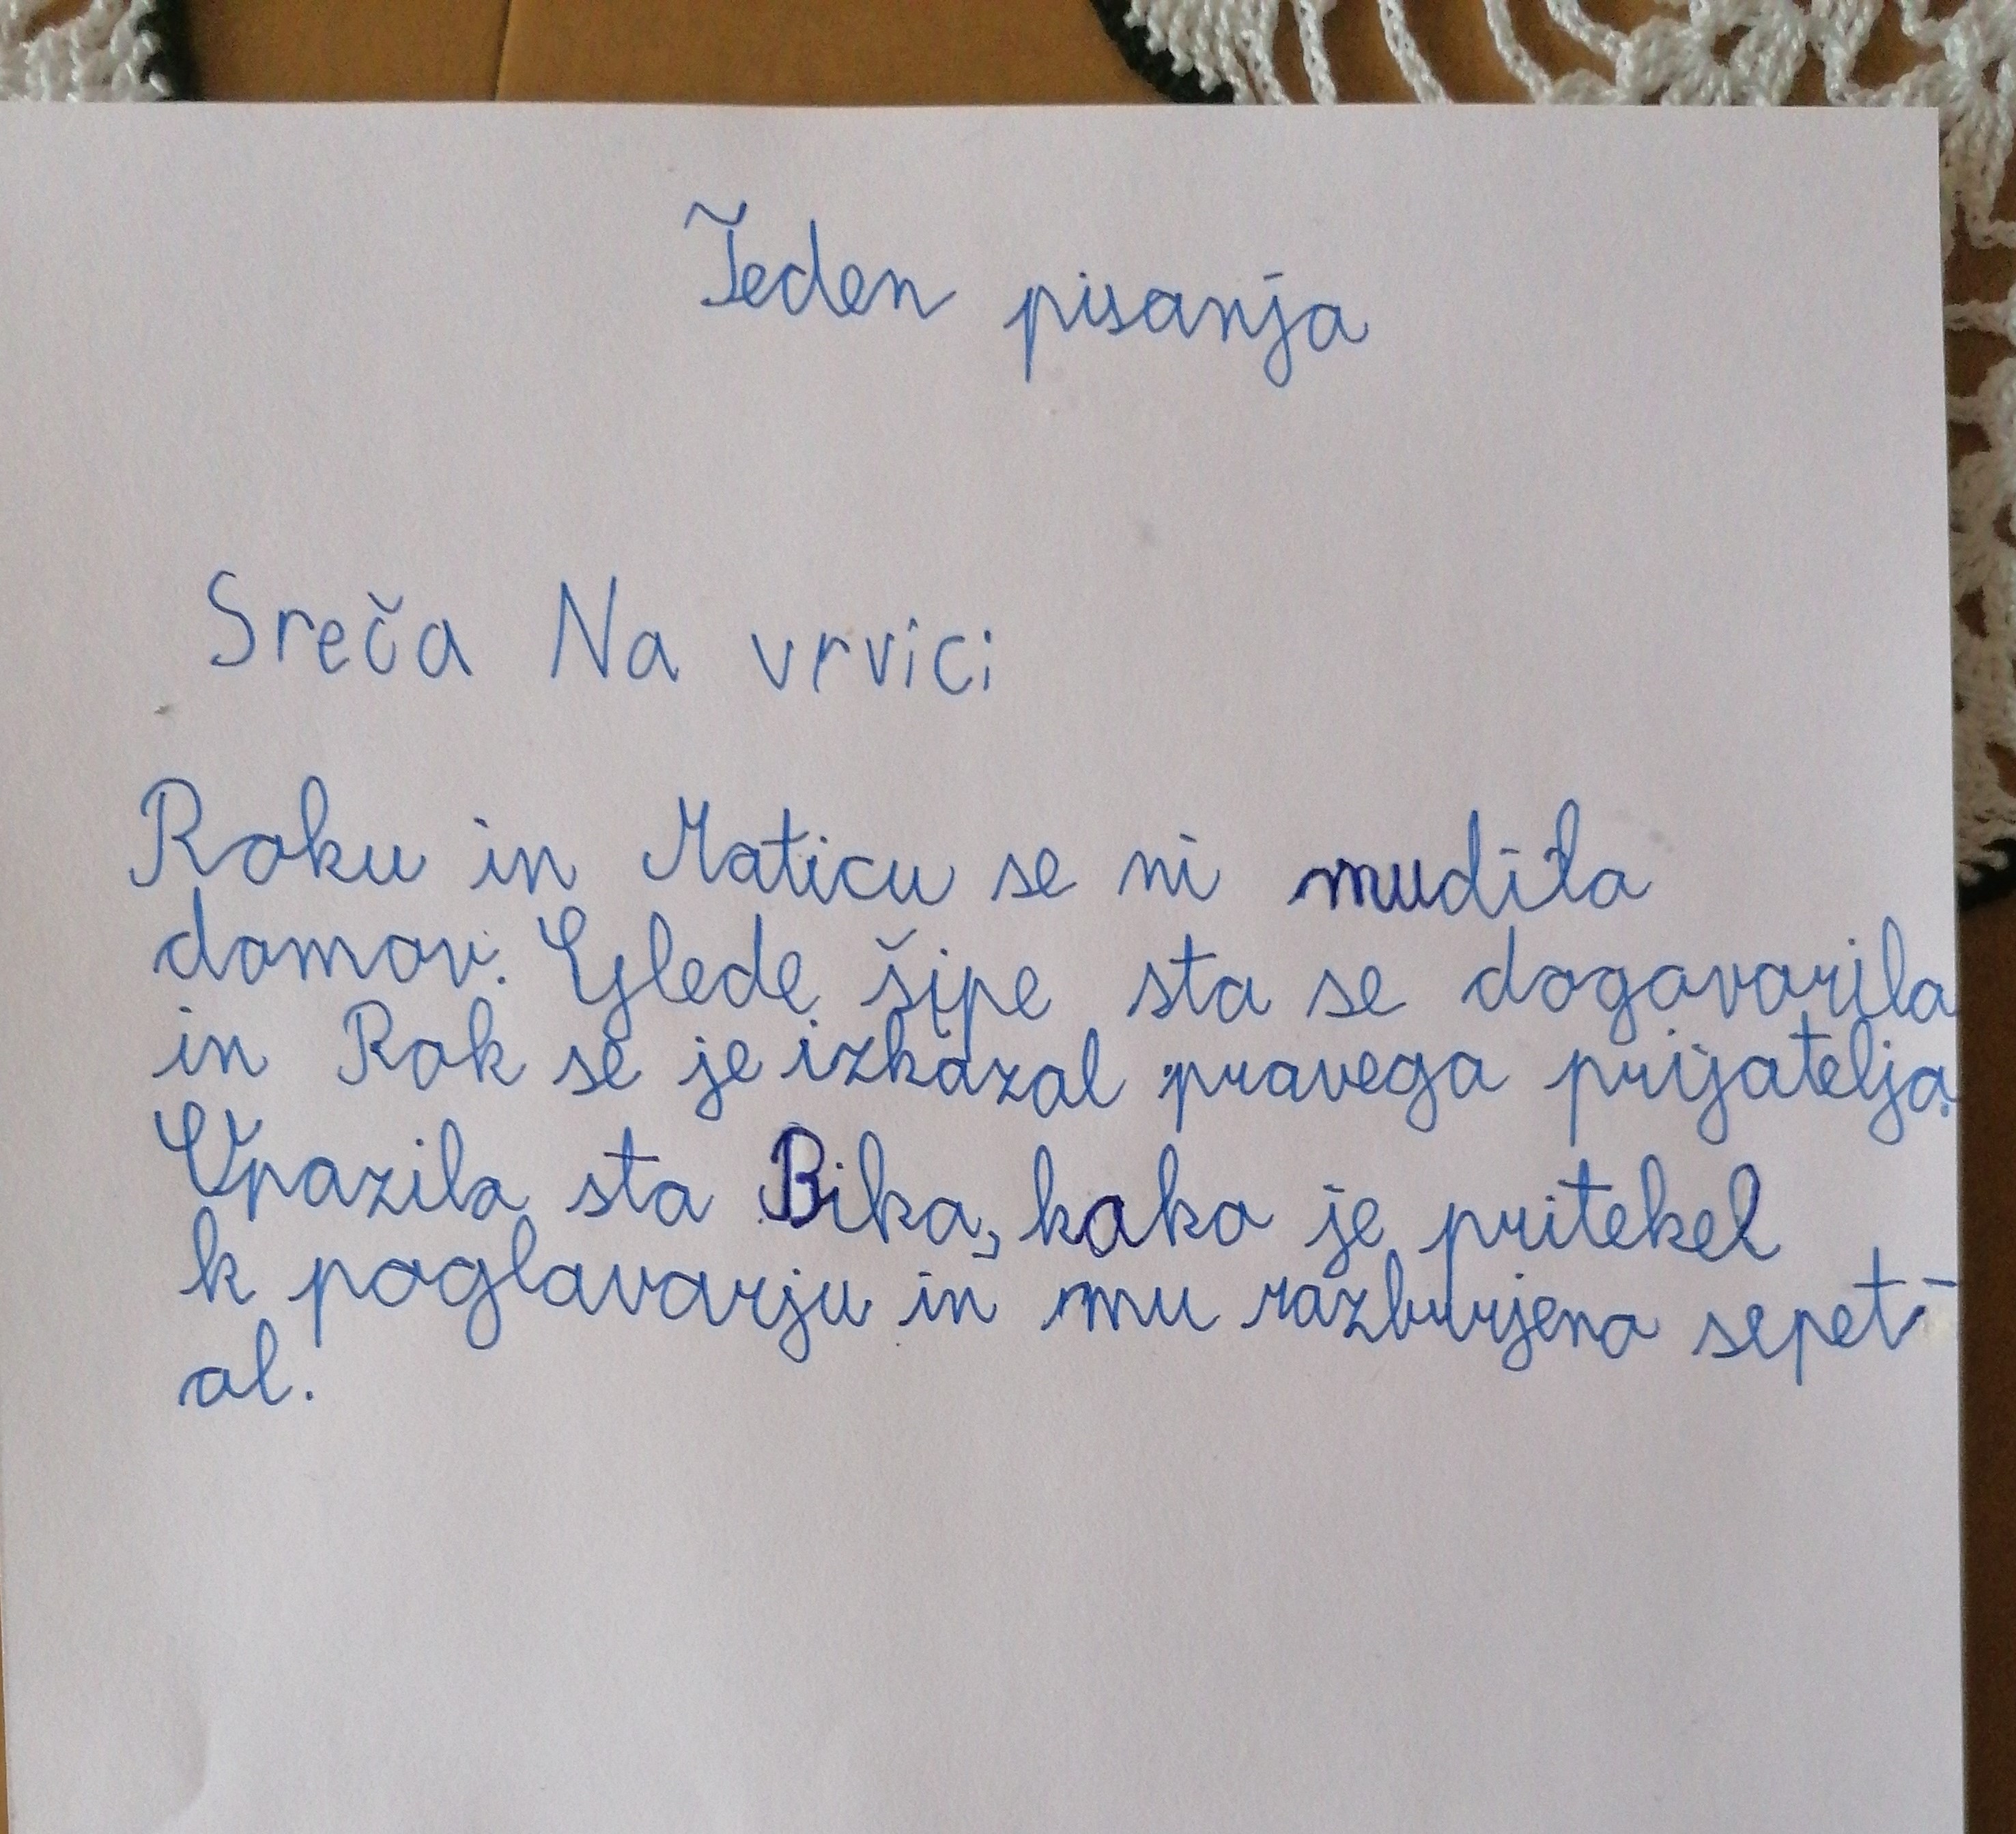 Teden pisanja
Sreča Na vrvici
Roku in Maticu se ni mudilo
domov. Glede šipe sta se dogovorila
in Rok se je izkazal pravega prijatelja.
Opazila sta Bika, kako je pritekel
k poglavarju in mu razburjeno šepet-
al.